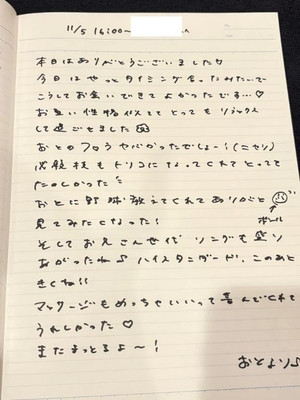 11/5 16:00〜
本日はありがとうございました
今日はやっとタイミング合ったみたいで
こうしてお会いできてよかったです…♡
お互い性格似ててとってもリラックス
して過ごせました
おとのフロうヤバかったでしょー!(ニヤリ)
技もトリコになってくれてとっても
たのしかった
おとに野球教えてくれてありがと
見てみたくなった!
ボール
そしてお兄さん世代ソングも盛り
あがったね♪ハイスタンダード、このあと
きくね!!
マッサージもめっちゃいいって喜んでくれて
うれしかった♡
またまっとるよ〜!
おとより♪